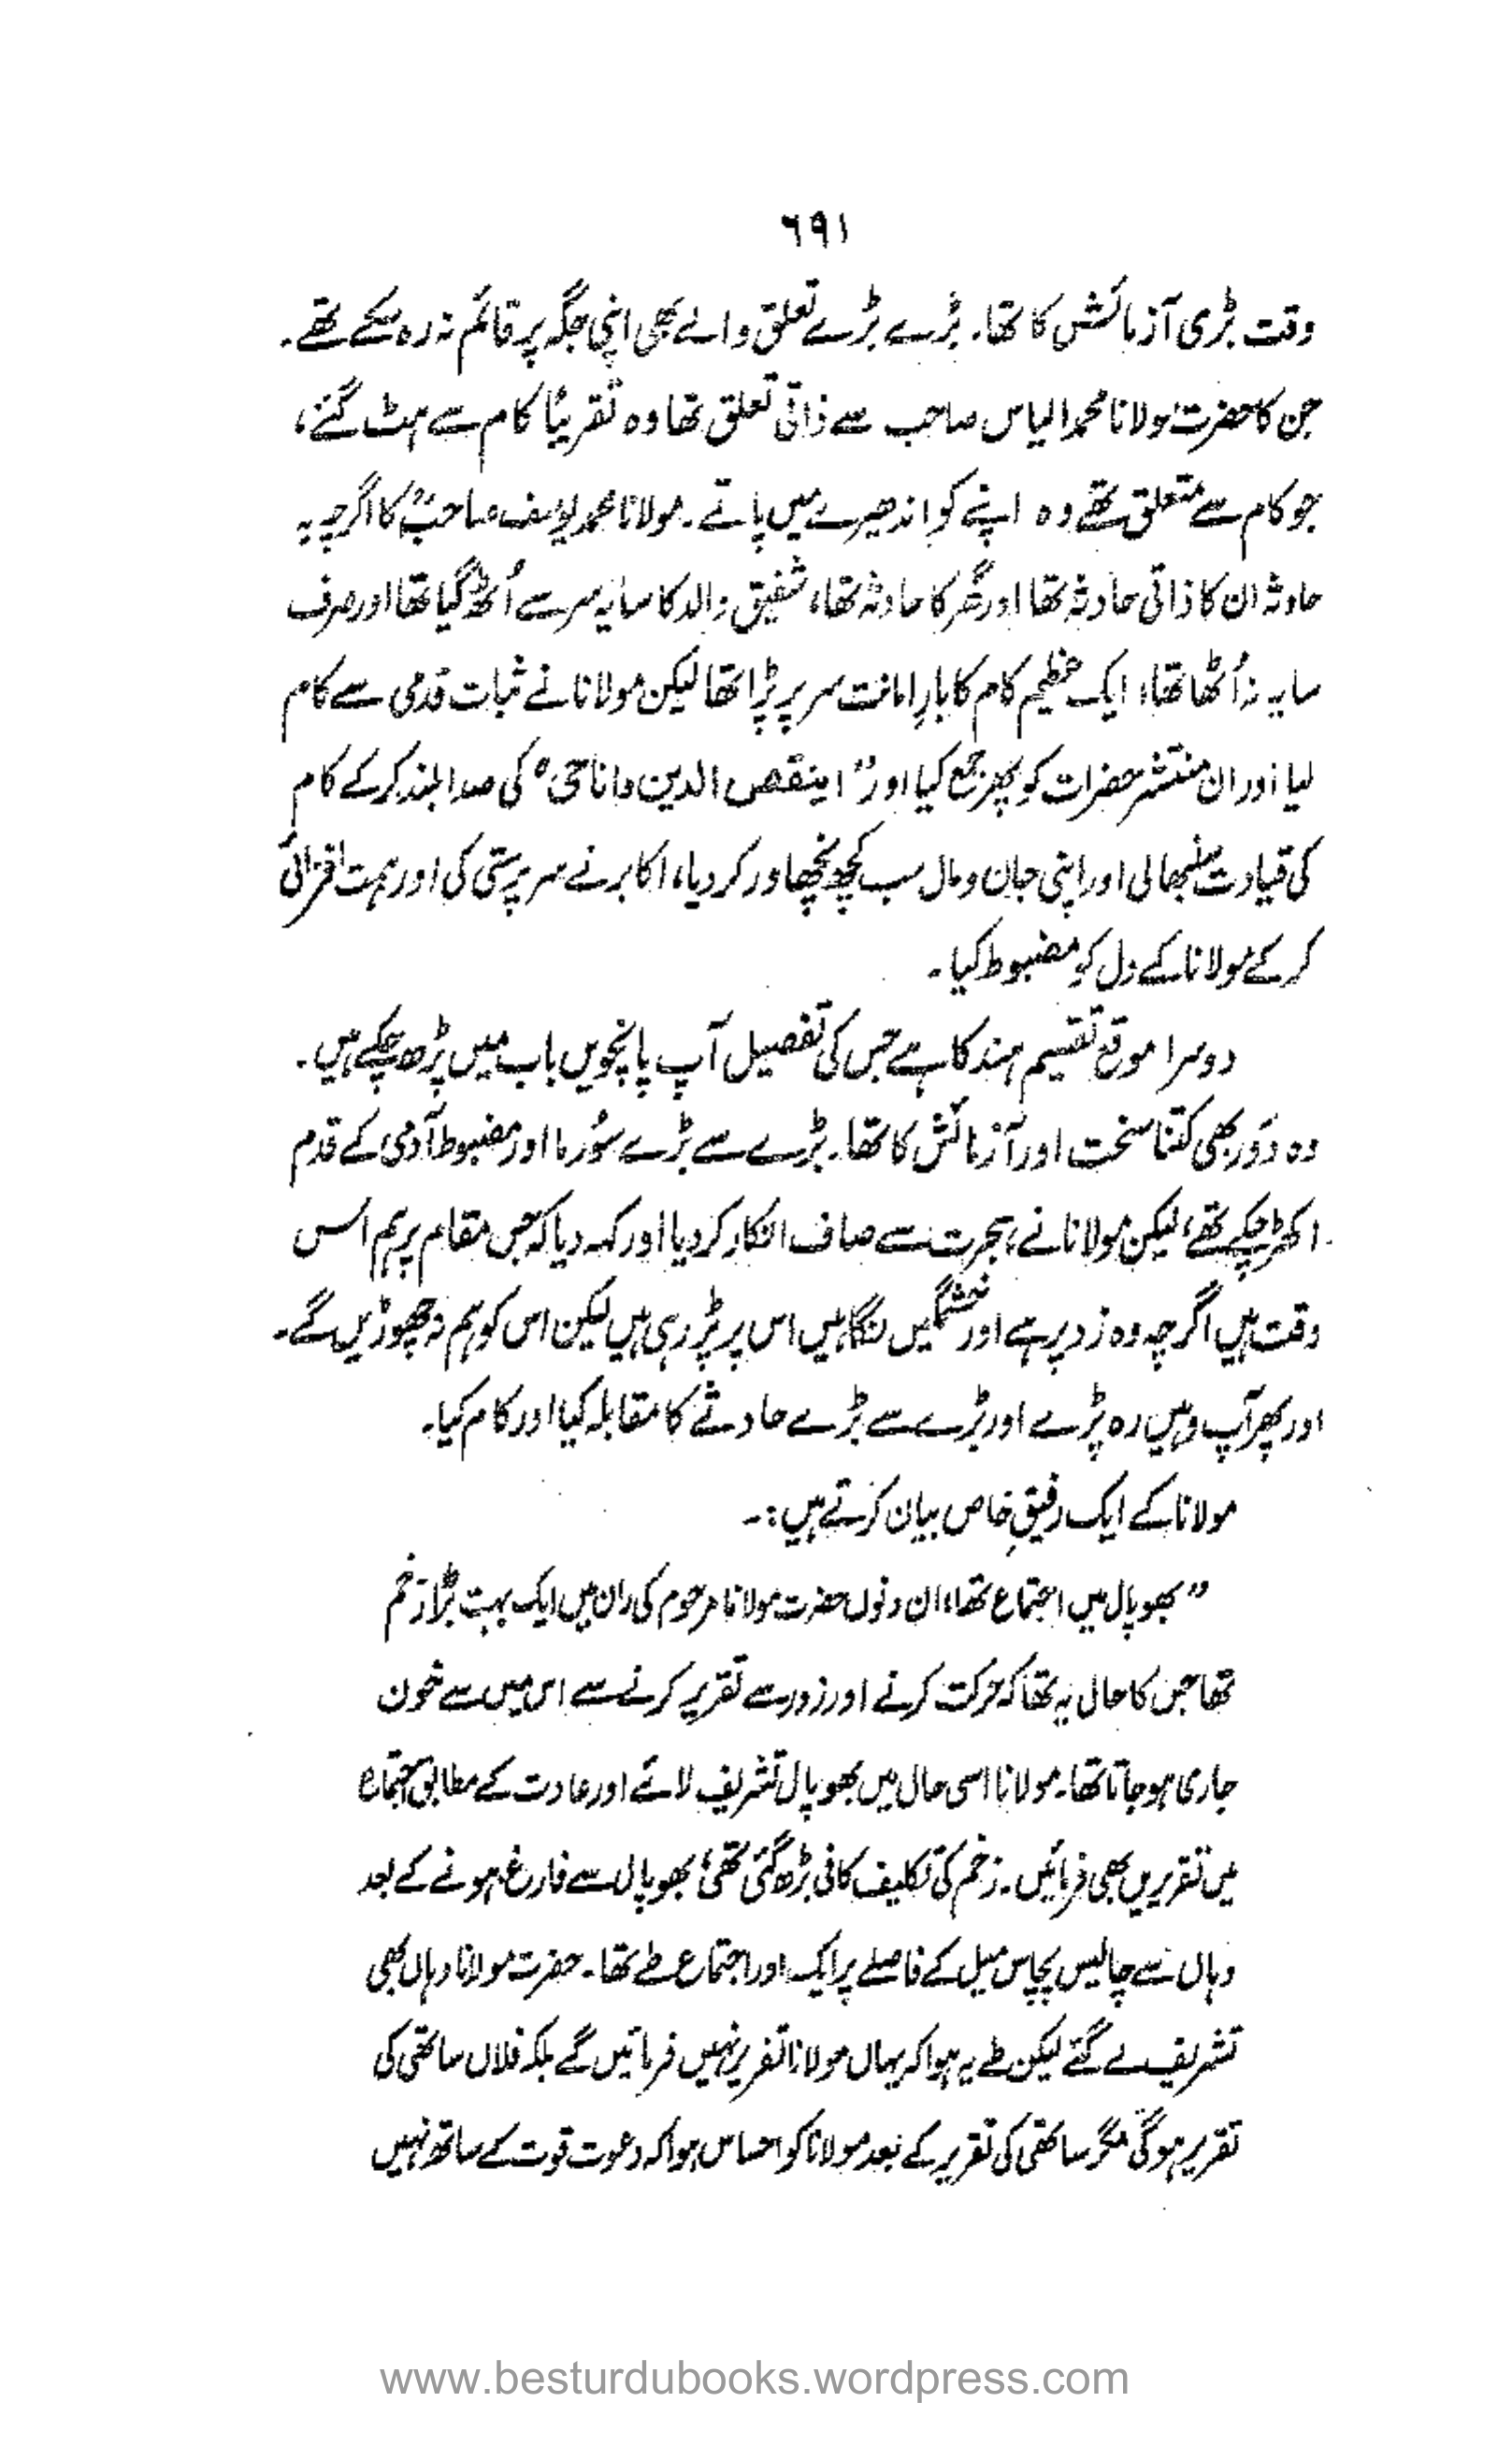 ۶۹۱
وقت بڑی آزمائش کا تھا۔ بڑے بڑے تعلق والے بھی اپنی جگہ پر قائم نہ رہ سکے تھے۔
جن کا حضرت مولانا محمد الیاس صاحب سے ذاتی تعلق تھا وہ تقریباً کام سے ہٹ گئے،
جو کام سے متعلق تھے وہ اپنے کو اندھیرے میں پاتے۔ مولانا محمد یوسف صاحبؒ کا اگرچہ یہ
حادثہ ان کا ذاتی حادثہ تھا اور گھر کا حادثہ تھا، شفیق والد کا سایہ سر سے اُٹھ گیا تھا اور صرف
سایہ نہ اُٹھا تھا، ایک عظیم کام کا بارِ امانت سر پر پڑا تھا لیکن مولانا نے ثبات قدمی سے کام
لیا اور ان منتشر حضرات کو پھر جمع کیا اور "اینقص الدین وانا حی" کی صدا بلند کرکے کام
کی قیادت سنبھالی اور اپنی جان و مال سب کچھ نچھاور کر دیا، اکابر نے سرپرستی کی اور ہمت افزائی
کرکے مولانا کے دل کو مضبوط کیا۔
دوسرا موقع تقسیم ہند کا ہے جس کی تفصیل آپ پانچویں باب میں پڑھ چکے ہیں۔
وہ دَور بھی کتنا سخت اور آزمائش کا تھا۔ بڑے سے بڑے سُورما اور مضبوط آدمی کے قدم
اکھڑ چکے تھے، لیکن مولانا نے ہجرت سے صاف انکار کر دیا اور کہہ دیا کہ جس مقام پر ہم اس
وقت ہیں اگرچہ وہ زد پر ہے اور خشمگیں نگاہیں اس پر پڑ رہی ہیں لیکن اس کو ہم نہ چھوڑیں گے۔
اور پھر آپ وہیں رہ پڑے اور بڑے سے بڑے حادثے کا مقابلہ کیا اور کام کیا۔
مولانا کے ایک رفیقِ خاص بیان کرتے ہیں:۔
"بھوپال میں اجتماع تھا، ان دنوں حضرت مولانا مرحوم کی ران میں ایک بہت بڑا زخم
تھا جس کا حال یہ تھا کہ حرکت کرنے اور زور سے تقریر کرنے سے اس میں سے خون
جاری ہو جاتا تھا۔ مولانا اسی حال میں بھوپال تشریف لائے اور عادت کے مطابق اجتماع
میں تقریریں بھی فرمائیں۔ زخم کی تکلیف کافی بڑھ گئی تھی، بھوپال سے فارغ ہونے کے بعد
وہاں سے چالیس پچاس میل کے فاصلے پر ایک اور اجتماع طے تھا۔ حضرت مولانا وہاں بھی
تشریف لے گئے لیکن طے یہ ہوا کہ یہاں مولانا تقریر نہیں فرمائیں گے بلکہ فلاں ساتھی کی
تقریر ہوگی مگر ساتھی کی تقریر کے بعد مولانا کو احساس ہوا کہ دعوت قوت کے ساتھ نہیں
www.besturdubooks.wordpress.com